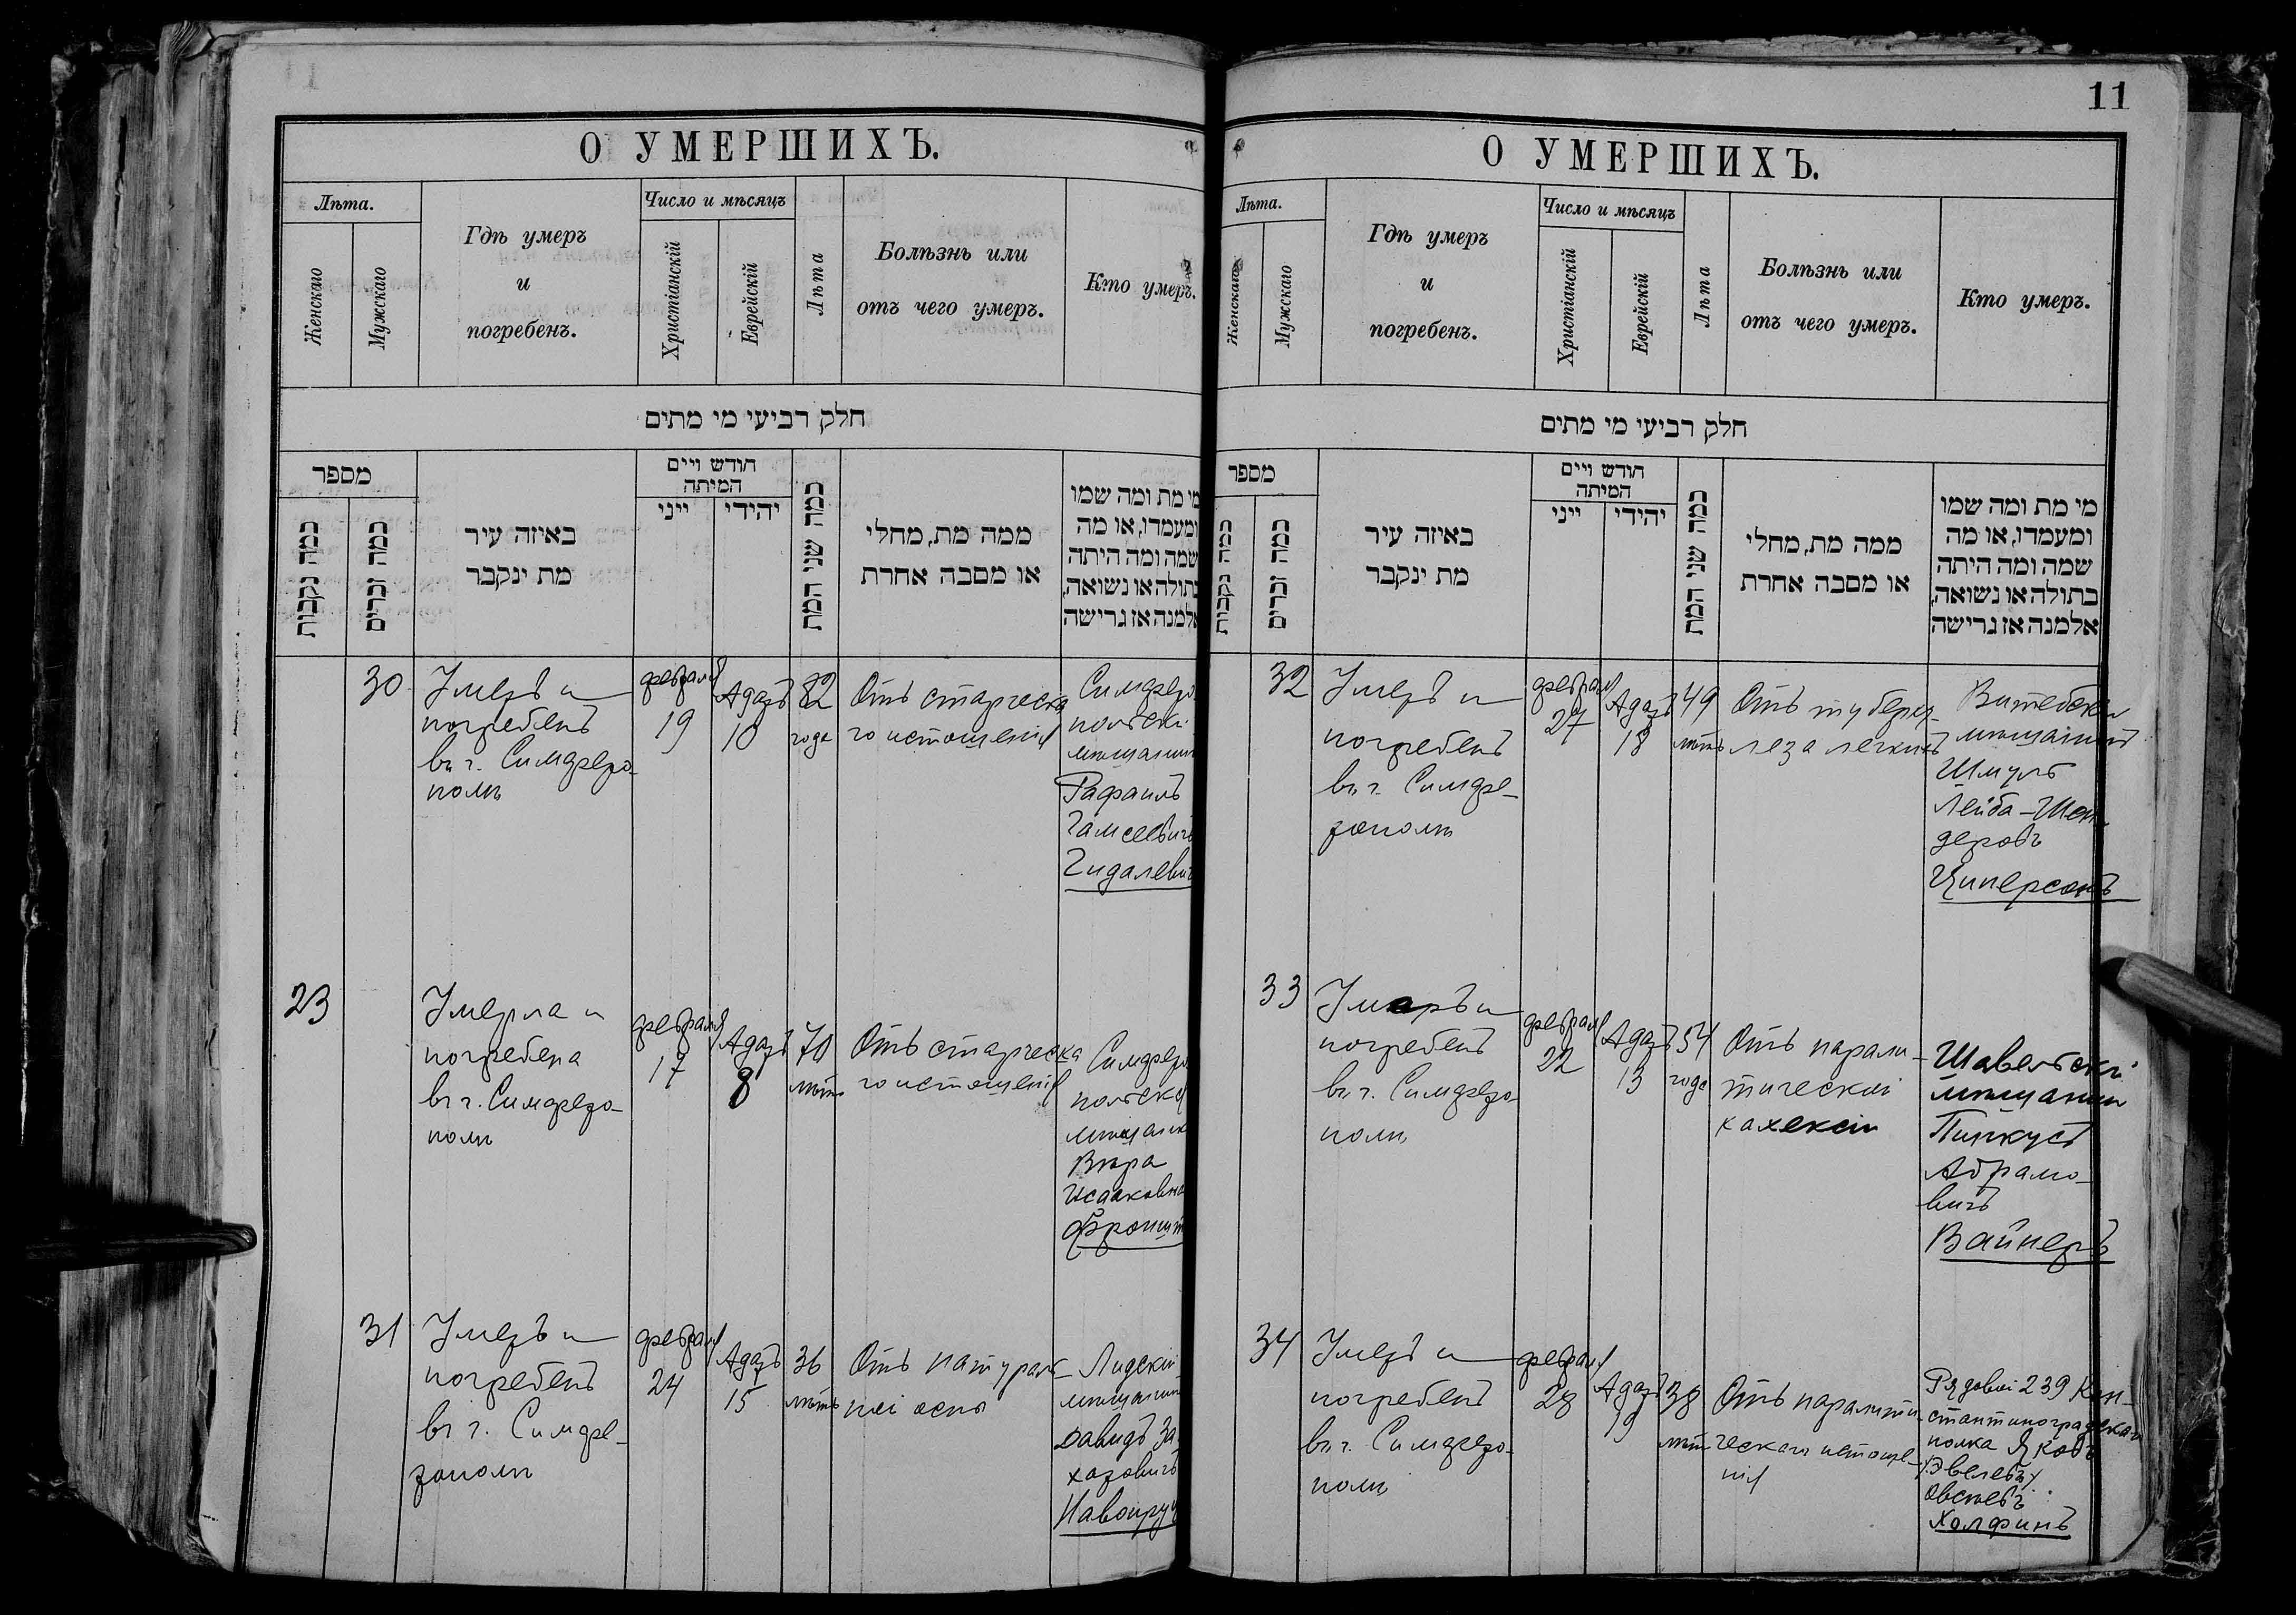 11
О УМЕРШИХЪ.
Лѣта.
Женскаго
Мужскаго
Гдѣ умеръ
и
погребенъ.
Число и мѣсяцъ
Христіанскій
Еврейскій
Лѣта
Болѣзнь или
отъ чего умеръ.
Кто умеръ.
חלק רביעי מי מתים
מספר
כמה נקבות
כמה זכרים
באיזה עיר
מת ינקבר
חודש ויים
המיתה
ייני
יהודי
כמה שני המת
ממה מת, מחלי
או מסבה אחרת
מי מת ומה שמו
ומעמדו, או מה
שמה ומה היתה
בתולה או נשואה,
אלמנה אז גרישה
30
Умеръ и
погребенъ
въ г. Симферо-
полѣ
февраля
19
Адаръ
10
82
года
Отъ старческа
го истощенія
Симферо
польскі
мѣщанин
Рафаилъ
Гидалевич
23
Умерла и
погребена
въ г. Симферо-
полѣ
февраля
17
Адаръ
8
70
лѣтъ
Отъ старческа
го истощенія
Симферо
польская
мѣщанк
Вѣра
Исааковна
31
Умеръ и
погребенъ
въ г. Симфе-
рополѣ
февраля
24
Адаръ
15
36
лѣтъ
Отъ натураль-
ной оспы
Лидскій
мѣщанин
Давидъ За
харовичъ
О УМЕРШИХЪ.
Лѣта.
Женскаго
Мужскаго
Гдѣ умеръ
и
погребенъ.
Число и мѣсяцъ
Христіанскій
Еврейскій
Лѣта
Болѣзнь или
отъ чего умеръ.
Кто умеръ.
חלק רביעי מי מתים
מספר
כמה נקבות
כמה זכרים
באיזה עיר
מת ינקבר
חודש ויים
המיתה
ייני
יהודי
כמה שני המת
ממה מת, מחלי
או מסבה אחרת
מי מת ומה שמו
ומעמדו, או מה
שמה ומה היתה
בתולה או נשואה,
אלמנה אז גרישה
32
Умеръ и
погребенъ
въ г. Симфе-
рополѣ
февраля
27
Адаръ
18
49
лѣтъ
Отъ туберку-
леза легкихъ
Витебскій
мѣщанинъ
Шмуль
Лейба-Шен
деровъ
Циперсонъ
33
Умеръ и
погребенъ
въ г. Симферо-
полѣ
февраля
22
Адаръ
13
54
года
Отъ парали-
тической
кахексіи
Шавельскі
мѣщанин
Пинкусъ
Абрамо-
вичъ
Вайнеръ
34
Умеръ и
погребенъ
въ г. Симферо-
полѣ
февраля
28
Адаръ
19
38
лѣтъ
Отъ паралити-
ческаго истоще-
нія
Рядовой 239 Кон-
стантиноградскаго
полка Яковъ
Овсѣевъ
Холфинъ